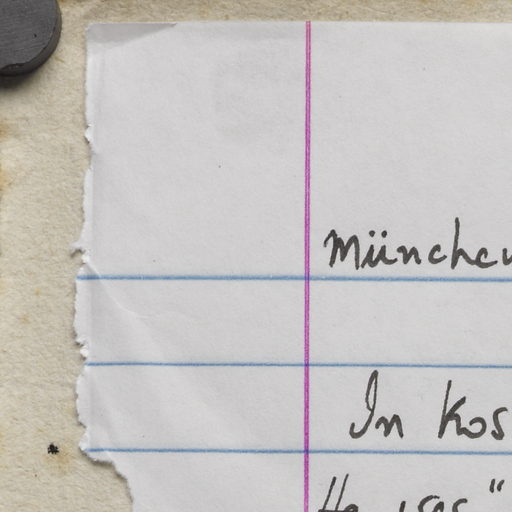 München
In Kos
He